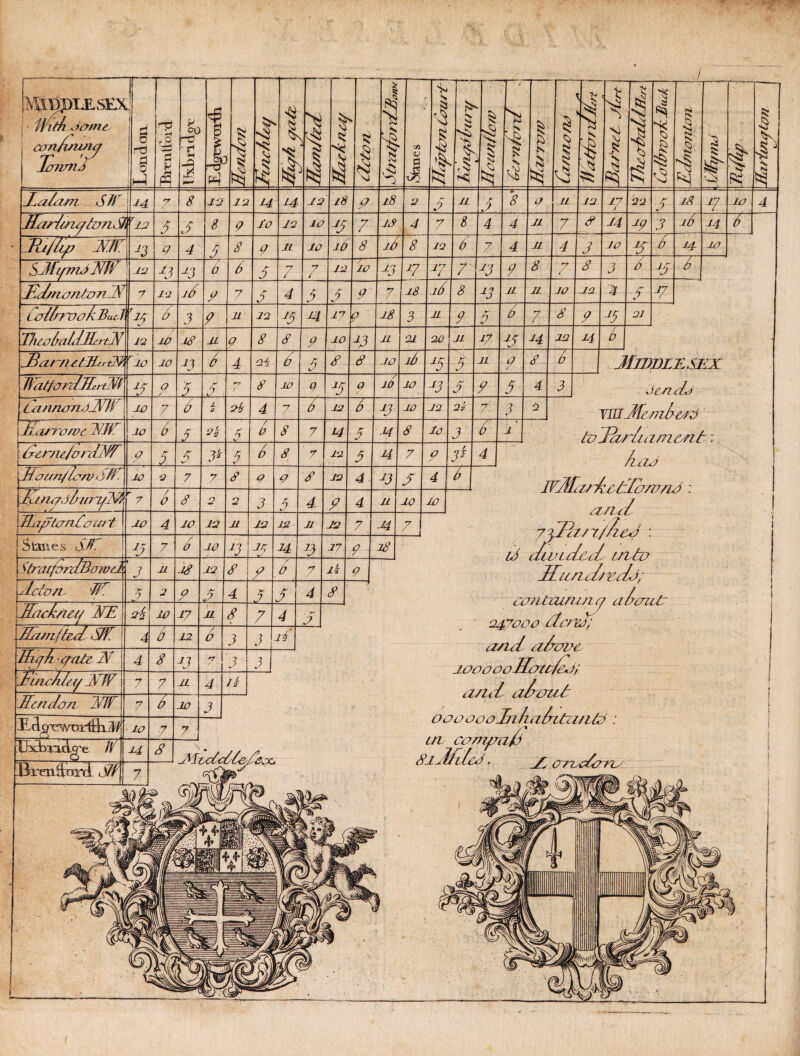 MIDDLESEX
With some
confining
Towns
London
Brentford
Uxbridge
Edgeworth
Hendon
Finchley
High gate
Hamsted
Hackney
Acton
Stratford Bowe
Stanes
Hapton Court
Kingsbury
Hounslow
Gernford
Harrow
Cannons
Watford Hert
Barnet Hert
Theobald Hert
Colbrook Buck
Edmonton
S Myms
Rislip
Harlington
Lalam SW 14 7 8 12 12 14 14 12 18 9 18 2 5 11 5 8 9 11 12 17 22 5 18 17 10 4
Harlington SW 12 5 5 8 9 10 12 10 15 7 18 4 7 8 4 4 11 7 8 14 19 3 16 14 6
Rislip NW 13 9 4 5 8 9 11 10 16 8 16 8 12 6 7 4 11 4 3 10 15 6 14 10
S Myms NW 12 13 13 6 6 5 7 7 12 10 13 17 17 7 13 9 8 7 8 3 6 15 6
Edmonton N 7 12 16 9 7 5 4 5 5 9 7 18 16 8 13 11 11 10 12 4 5 17
Colbrook Buc W 15 6 3 9 11 12 15 14 17 9 18 3 11 9 5 6 7 8 9 15 21
Theobald Hert N 12 16 18 11 9 8 8 9 10 13 11 21 20 11 17 15 14 12 14 6
Barnet Hert NW 10 10 13 6 4 2½ 6 5 8 8 10 16 15 5 11 9 8 6
Watford Hert NW 15 9 5 5 7 8 10 9 15 9 16 10 13 5 9 5 4 3
Cannons NW 10 7 6 ½ 2½ 4 7 6 12 6 13 10 12 2½ 7 3 2
Harrowe NW 10 6 5 2½ 5 6 8 7 14 5 14 8 10 3 6 1
Gerneford NW 9 5 5 3½ 5 6 8 7 12 5 14 7 9 3½ 4
Hounslow SW 10 2 7 7 8 9 9 8 12 4 13 5 4 6
Kingsbury NW 7 6 8 2 2 3 5 4 9 4 11 10 10
Hapton Court 10 4 10 12 11 12 12 11 12 7 14 7
Stanes SW 15 7 6 10 13 15 14 13 17 9 18
Stratford Bowe E 3 11 18 12 8 9 6 7 1½ 9
Acton W 5 2 9 5 4 5 5 4 8
Hackney NE 2½ 10 17 11 8 7 4 5
Hamsted SW 4 6 12 6 3 3 1½
High gate N 4 8 13 7 3 3
Finchley NW 7 7 11 4 1½
Hendon NW 7 6 10 3
Edgeworth W 10 7 7
Uxbridge W 14 8
Brentford SW 7
MIDDLESEX
sends
VIII Members
to Parliament:
has
IV Market Towns:
and
73 Parishes:
is divided into
Hundreds;
containing about
247000 Acres;
and above
100000 Houses;
and about
000000 Inhabitants:
in compass
81 Miles.
Middlesex
London